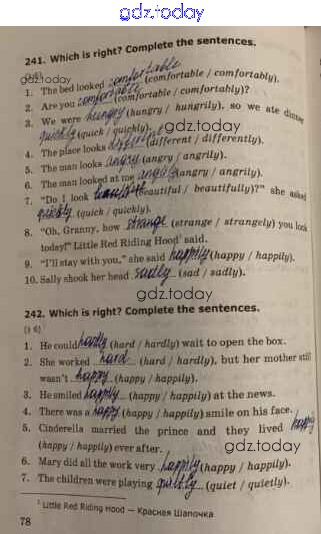 gdz.today
241. Which is right? Complete the sentences.
1. The bed looked comfortable (comfortable / comfortably).
2. Are you comfortable (comfortable / comfortably)?
3. We were hungry (hungry / hungrily), so we ate dinner
quickly (quick / quickly).
gdz.today
4. The place looks different (different / differently).
5. The man looks angry (angry / angrily).
6. The man looked at me angrily (angry / angrily).
7. "Do I look beautiful (beautiful / beautifully)?" she asked
quickly. (quick / quickly).
gdz.today
8. "Oh, Granny, how strange (strange / strangely) you look
today!" Little Red Riding Hood¹ said.
9. "I'll stay with you," she said happily (happy / happily).
10. Sally shook her head sadly (sad / sadly).
gdz.today
242. Which is right? Complete the sentences.
(§ 6)
1. He could hardly (hard / hardly) wait to open the box.
2. She worked hard (hard / hardly), but her mother still
wasn't happy (happy / happily).
3. He smiled happily (happy / happily) at the news.
4. There was a happy (happy / happily) smile on his face.
5. Cinderella married the prince and they lived happily
(happy / happily) ever after.
gdz.today
6. Mary did all the work very happily (happy / happily).
7. The children were playing quietly (quiet / quietly).
¹ Little Red Riding Hood — Красная Шапочка
78
gdz.today